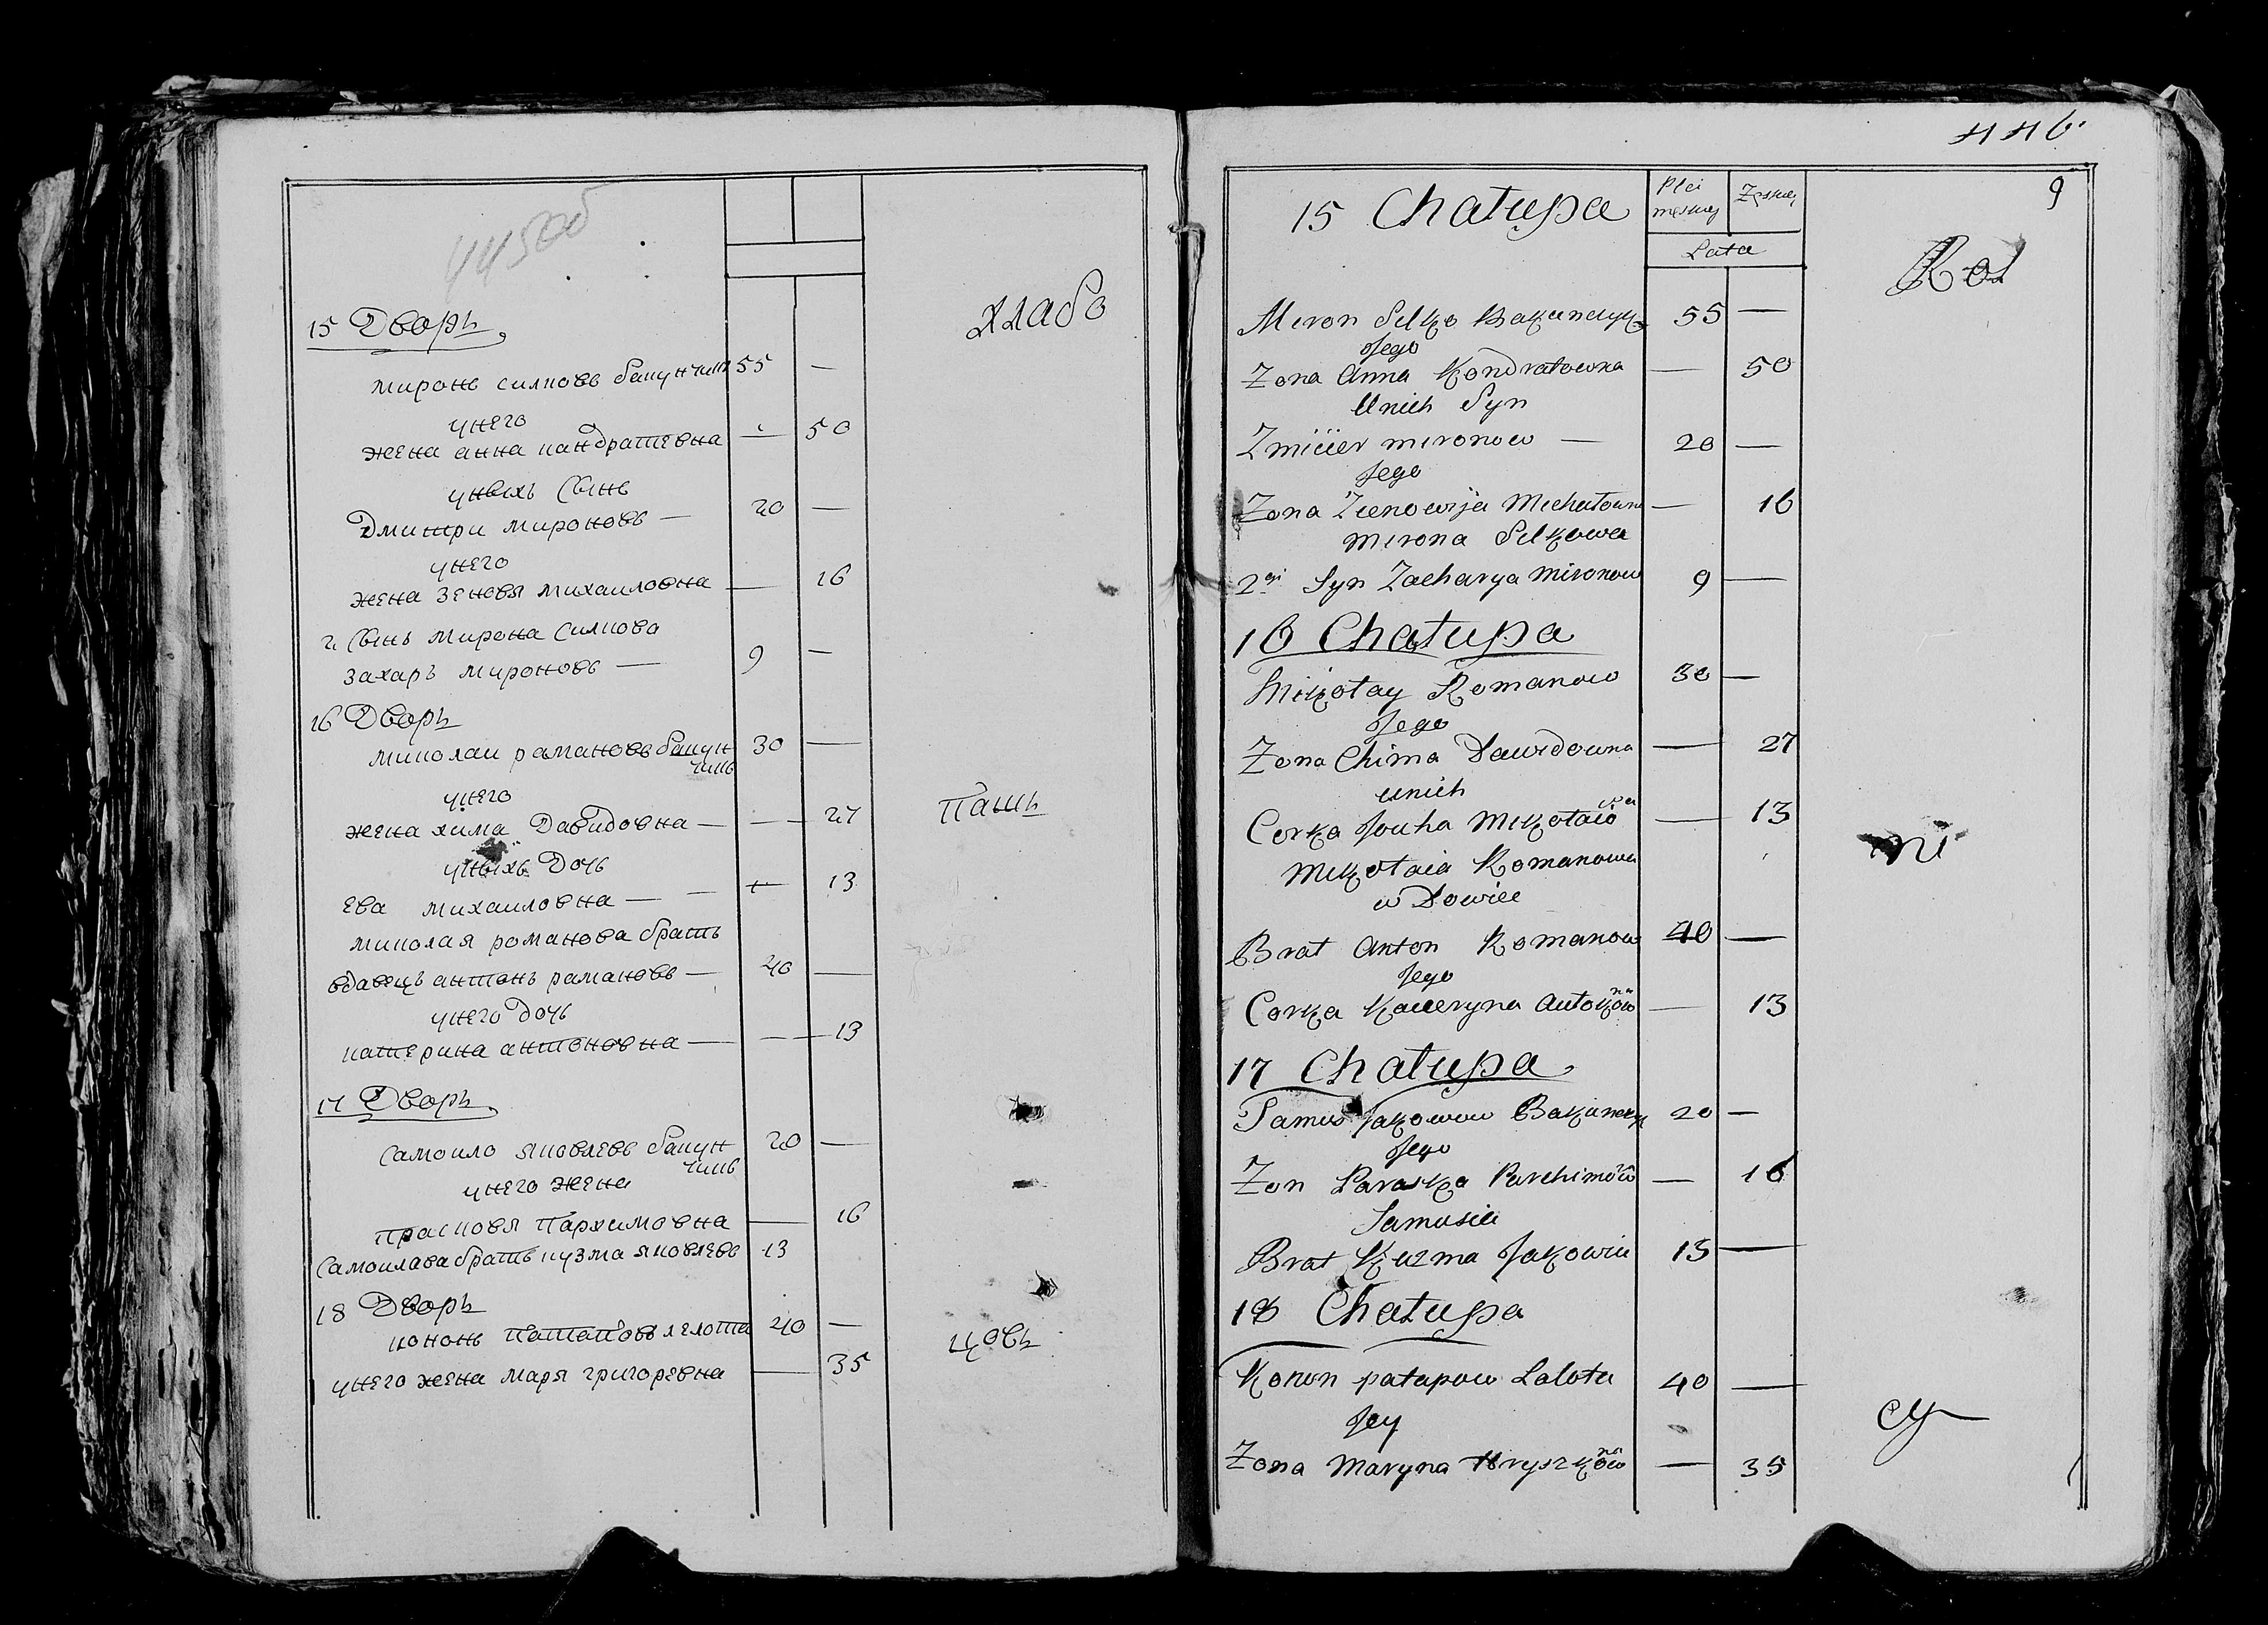 445об
15 Дворъ
хлабо
миронъ силковъ бакунчикъ 55 —
унего
жена анна кандратевна — 50
унвихъ сынъ
Дмитри мироновъ — 20 —
унего
жена зеновя михаиловна — 16
2. сынъ мирона силкова
захаръ мироновъ — 9 —
16 Дворъ
миколаи рамановъ бакун 30 —
чикъ
унего
жена хима Давидовна — — 27
пашъ
уныхъ Дочь
ева михаиловна — — 13
миколая романова братъ
вдавецъ антонъ рамановъ — 40 —
унего дочь
катерина антоновна — — 13
17 Дворъ
самоило яковлевъ бакун 20 —
чикъ
унего жена
прасковя пархимовна — 16
самоилава братъ кузма яковлевъ 13
18 Дворъ
кононъ патаповъ лелота 40 —
цовъ
унего жена маря григоревна — 35
446.
9
15 Chatupa
Plci męskiey Zęskiey
Lata
Rol
Miron Silko Bakunczyk 55 —
Jego
Zona Anna Kondratowna — 50
Unich Syn
Zmicier mironow — 20 —
Jego
Zona Zienowija Michałowna — 16
Mirona Silkowa
2gi Syn Zacharya Mironow 9 —
16 Chatupa
Mikołay Romanow 30 —
Jego
Zona Chima Dawidowna — 27
unich
Corka Jouha Mikołaiowa — 13
ni
Mikołaia Romanowa
w Dowiec
Brat Anton Romanow 40 —
Jego
Corka Kacieryna Antokow na — 13
17 Chatupa
Samuś Jakowow Bakunczyk 20 —
Jego
Zon Paraska Parchimow na — 16
Samusia
Brat Kuzma Jakowiu 13 —
18 Chatupa
Konon patapow Lalota 40 —
cy
Jey
Zona Maryna Hryszkow na — 35